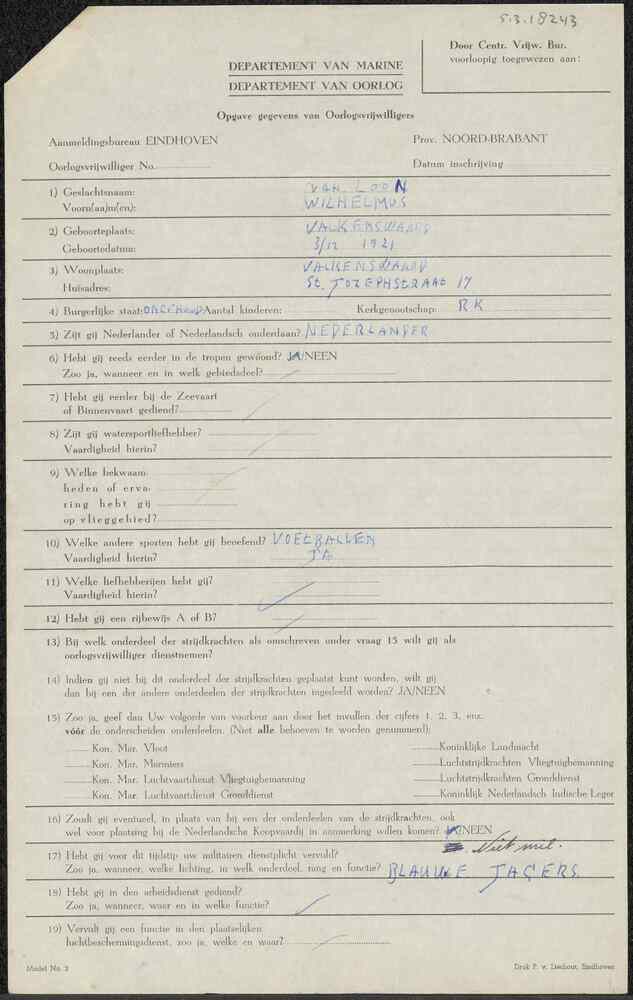 5.3.18243
Door Centr. Vrijw. Bur.
voorloopig toegewezen aan:
DEPARTEMENT VAN MARINE
DEPARTEMENT VAN OORLOG
Opgave gegevens van Oorlogsvrijwilligers
Aanmeldingsbureau EINDHOVEN Prov. NOORD-BRABANT
Oorlogsvrijwilliger No. Datum inschrijving
1) Geslachtsnaam: VAN LOON
Voorna(a)m(en): WILHELMUS
2) Geboorteplaats: VALKENSWAARD
Geboortedatum: 3/12 1921
3) Woonplaats: VALKENSWAARD
Huisadres: St. JOZEPHSTRAAT 17
4) Burgerlijke staat: ONGEHUWD Aantal kinderen: Kerkgenootschap: RK
5) Zijt gij Nederlander of Nederlandsch onderdaan? NEDERLANDER
6) Hebt gij reeds eerder in de tropen gewoond? JA/NEEN
Zoo ja, wanneer en in welk gebiedsdeel?
7) Hebt gij eerder bij de Zeevaart
of Binnenvaart gediend?
8) Zijt gij watersportliefhebber?
Vaardigheid hierin?
9) Welke bekwaam-
heden of erva-
ring hebt gij
op vlieggebied?
10) Welke andere sporten hebt gij beoefend? VOETBALLEN
Vaardigheid hierin? JA
11) Welke liefhebberijen hebt gij?
Vaardigheid hierin?
12) Hebt gij een rijbewijs A of B?
13) Bij welk onderdeel der strijdkrachten als omschreven onder vraag 15 wilt gij als
oorlogsvrijwilliger dienstnemen?
14) Indien gij niet bij dit onderdeel der strijdkrachten geplaatst kunt worden, wilt gij
dan bij een der andere onderdeelen der strijdkrachten ingedeeld worden? JA/NEEN
15) Zoo ja, geef dan Uw volgorde van voorkeur aan door het invullen der cijfers 1, 2, 3, enz.
vóór de onderscheiden onderdeelen. (Niet alle behoeven te worden genummerd):
Kon. Mar. Vloot Koninklijke Landmacht
Kon. Mar. Mariniers Luchtstrijdkrachten Vliegtuigbemanning
Kon. Mar. Luchtvaartdienst Vliegtuigbemanning Luchtstrijdkrachten Gronddienst
Kon. Mar. Luchtvaartdienst Gronddienst Koninklijk Nederlandsch Indische Leger
16) Zoudt gij eventueel, in plaats van bij een der onderdeelen van de strijdkrachten, ook
wel voor plaatsing bij de Nederlandsche Koopvaardij in aanmerking willen komen? JA/NEEN
17) Hebt gij voor dit tijdstip uw militairen dienstplicht vervuld? Niet mil.
Zoo ja, wanneer, welke lichting, in welk onderdeel, rang en functie? BLAUWE JAGERS.
18) Hebt gij in den arbeidsdienst gediend?
Zoo ja, wanneer, waar en in welke functie?
19) Vervult gij een functie in den plaatselijken
luchtbeschermingsdienst, zoo ja, welke en waar?
Model No. 2 Druk P. v. Lieshout, Eindhoven